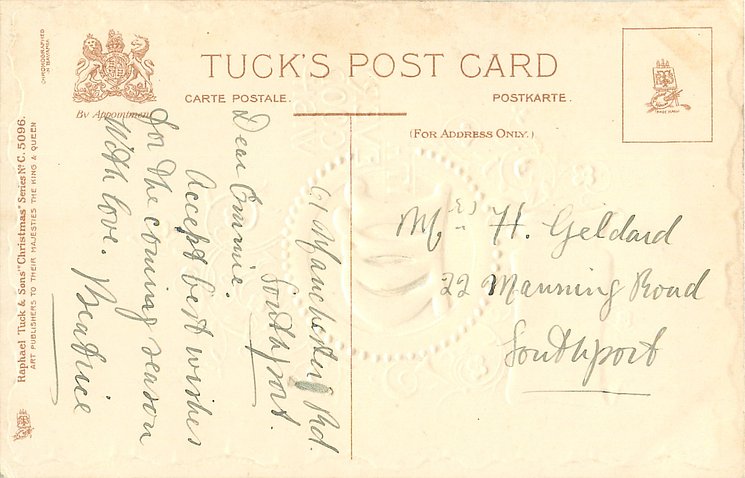 CHROMOGRAPHED
IN BAVARIA
By Appointment
TUCK'S POST CARD
CARTE POSTALE.
POSTKARTE.
(FOR ADDRESS ONLY.)
Raphael Tuck & Sons' "Christmas" Series No C. 5096.
ART PUBLISHERS TO THEIR MAJESTIES THE KING & QUEEN
61 Manchester Rd.
Southport.
Dear Emmie.
Accept best wishes
for the coming season
With love. Beatrice
Mrs H. Geldard
22 Manning Road
Southport